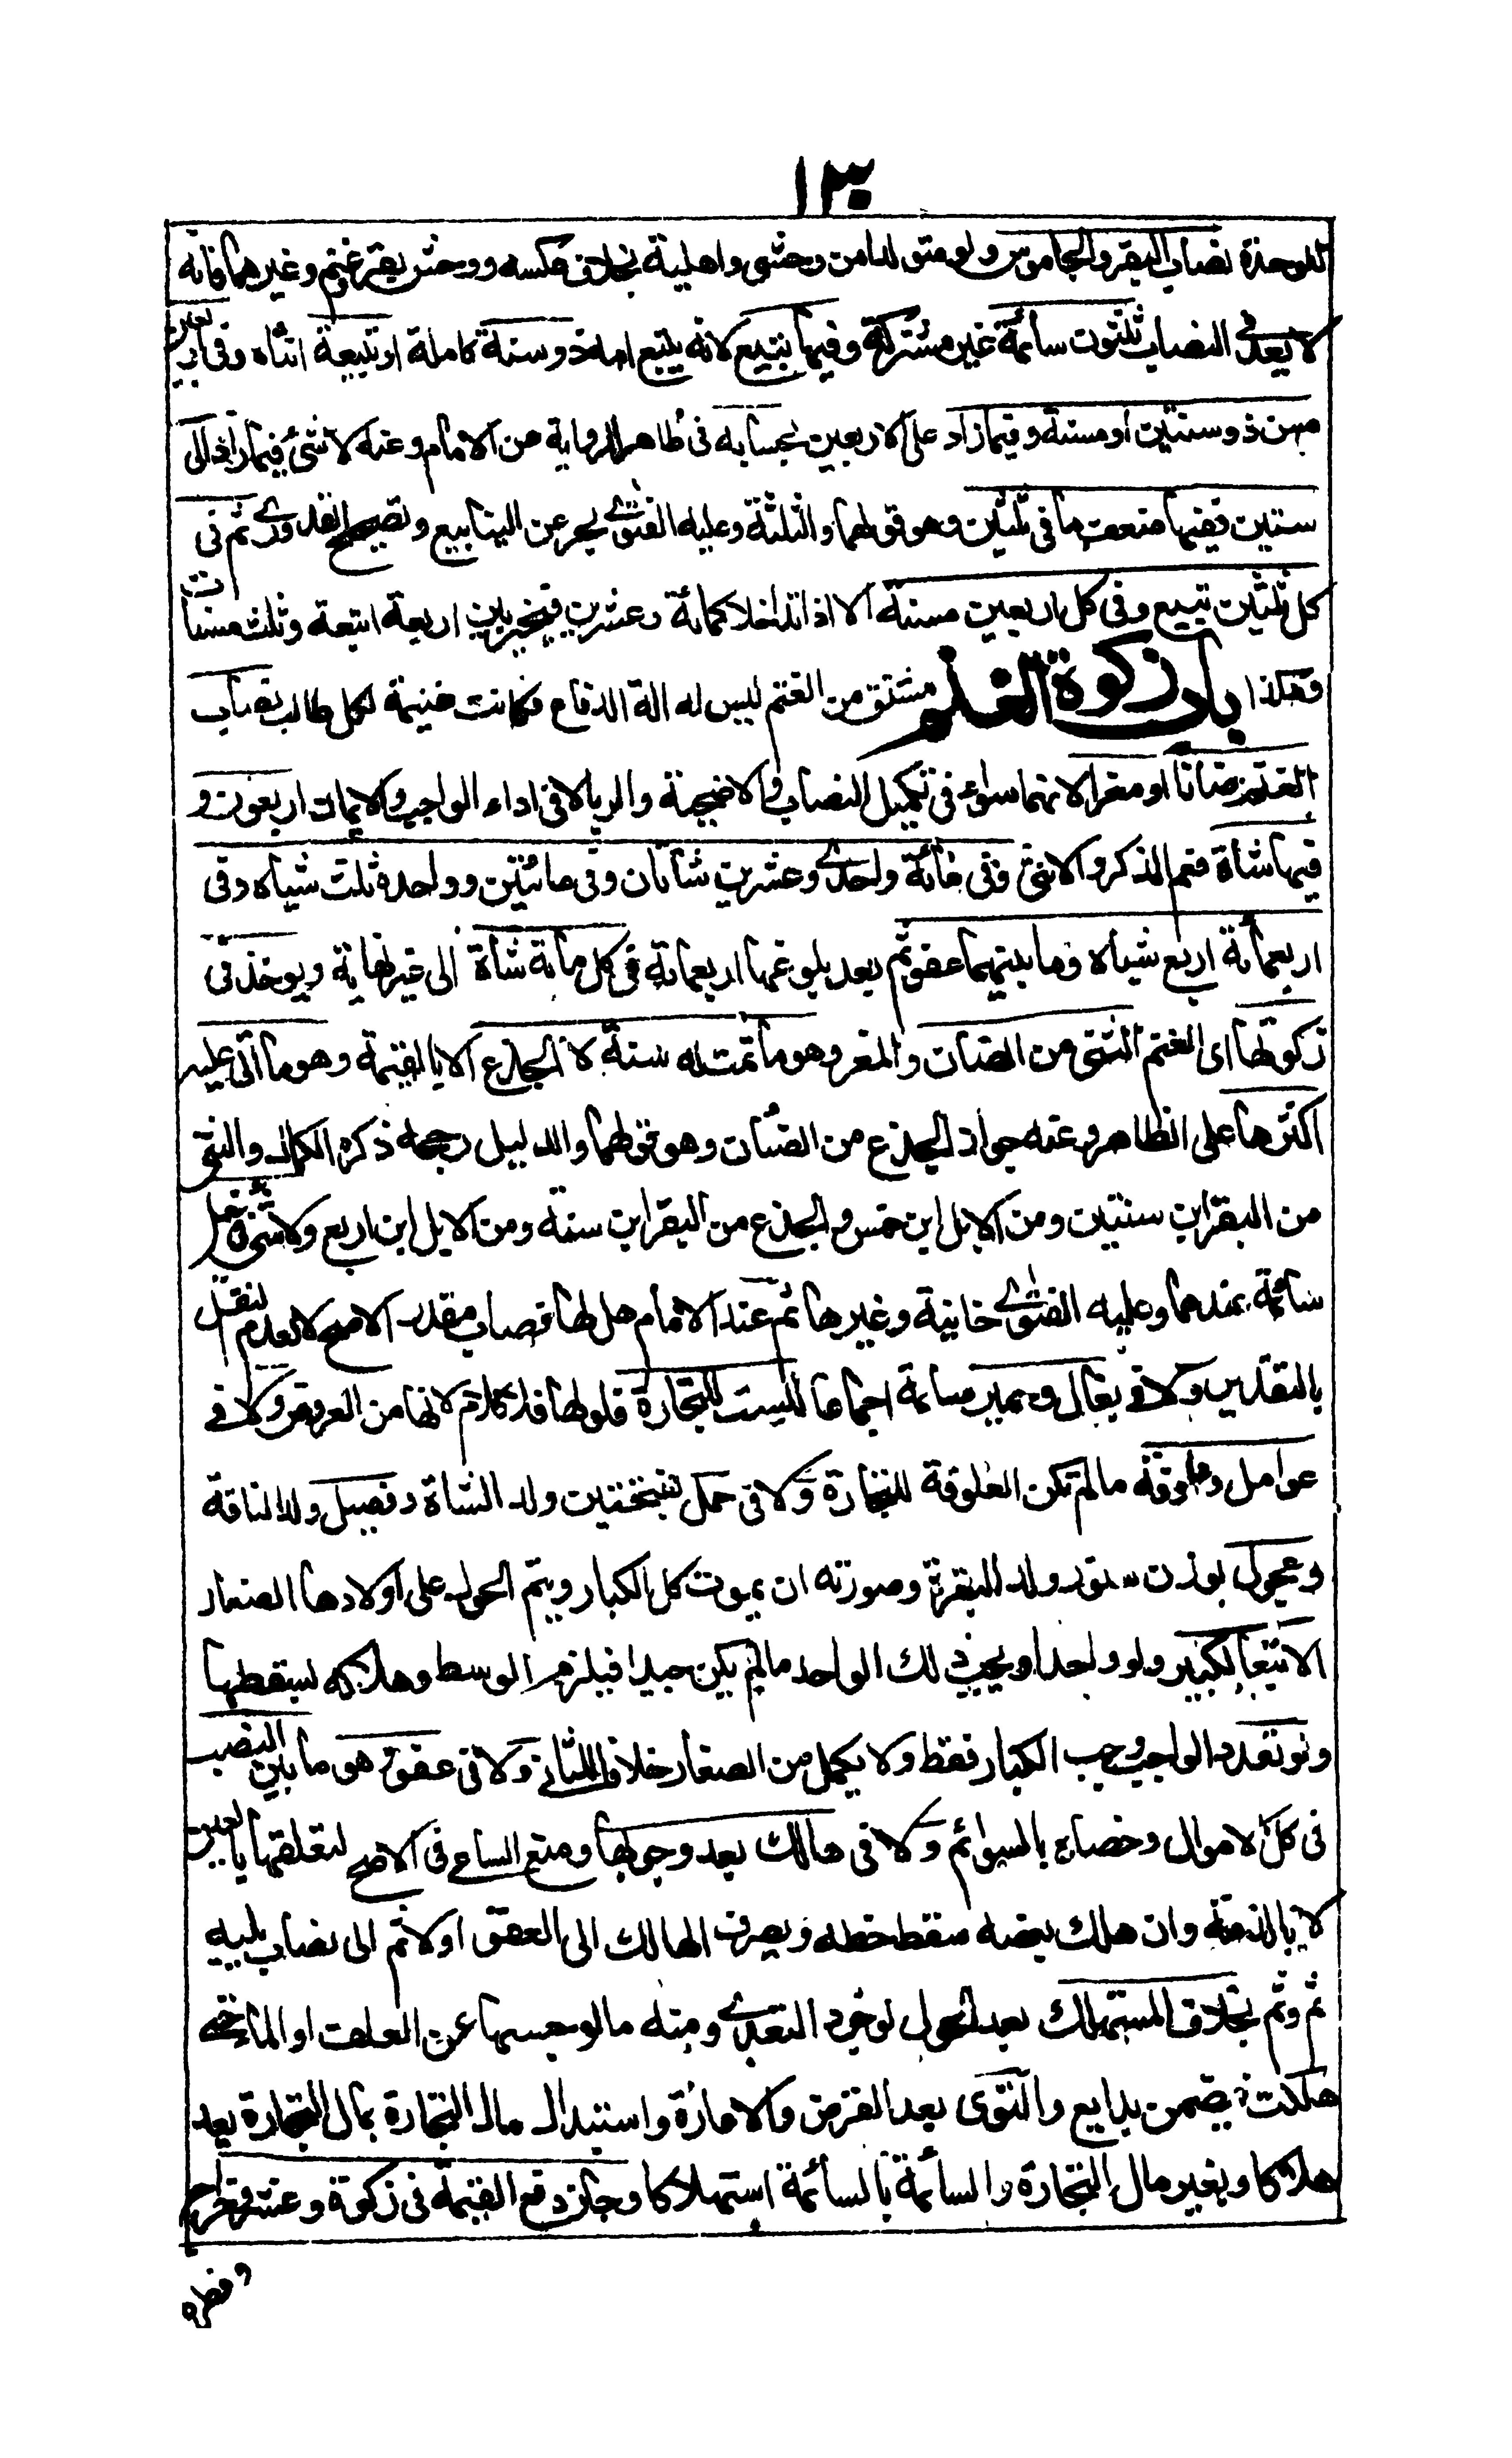 ١٣٠
للوحدة نصاب البقر والجاموس ولو متولدا من وحشى واهلية بخلاف عكسه ووحشى بقر وغنم وغيرهما فانه
لا يعد فى النصاب ثلثون سائمة غير مشتركة وفيها تبيع لانه يتبع امه ذو سنة كاملة او تبيعة انثاه وفى اربعين
مسن ذو سنتين او مسنة وفيما زاد على الاربعين بحسابه فى ظاهر الرواية عن الامام وعنه لا شئ فيما زاد الى
ستين ففيها ضعف ما فى ثلثين وهو قولهما والثلثة وعليه الفتوى بحر عن الينابيع وتصحيح القدورى ثم فى
كل ثلثين تبيع وفى كل اربعين مسنة الا اذا تداخلا كمائة وعشرين فيخير بين اربعة اتبعة وثلث مسنات
وهكذا باب زكوة الغنم مشتق من الغنم ليس له الة الدفاع فكانت غنيمة لكل طالب نصاب
الغنم ضانا او معزا لانهما سواء فى تكميل النصاب والاضحية والربا لا فى اداء الواجب والايمان اربعون و
فيها شاة فتعم الذكر والانثى وفى مائة واحدى وعشرين شاتان وفى مائتين وواحدة ثلث شياه وفى
اربعمائة اربع شياه وما بينهما عفو ثم بعد بلوغها اربعمائة فى كل مائة شاة الى غير نهاية ويوخذ فى
زكوتها اى الغنم الثنى من الضان والمعز وهو ما تمت له سنة لا الجذع الا بالقيمة وهو ما اتى عليه
اكثرها على الظاهر وعنه جواز الجذع من الضان وهو قولهما والدليل رجحه ذكره الكمال والثنى
من البقر ابن سنتين ومن الابل ابن خمس والجذع من البقر ابن سنة ومن الابل ابن اربع ولا شئ فى خيل
سائمة عندهما وعليه الفتوى خانية وغيرها ثم عند الامام هل لها نصاب مقدر الاصح لا لعدم النقل
بالتقدير ولا فى بغال وحمير سائمة اجماعا ليست للتجارة فلو لها فلا كلام لانها من العروض ولا فى
عوامل وعلوفة ما لم تكن العلوفة للتجارة ولا فى حمل بفتحتين ولد الشاة وفصيل ولد الناقة
وعجول بوزن سنور ولد البقرة وصورته ان يموت كل الكبار ويتم الحول على اولادها الصغار
الا تبعا لكبير ولو واحدا ويجب ذلك الواحد ما لم يكن جيدا فيلزم الوسط وهلاكه يسقطها
ولو تعدد الواجب وجب الكبار فقط ولا يكمل من الصغار خلافا للثانى ولا فى عفو هو ما بين النصب
فى كل الاموال وخصاه بالسوائم ولا فى هالك بعد وجوبها ومنع الساعى فى الاصح لتعلقها بالعين
لا بالذمة وان هلك بعضه سقط حظه ويصرف الهالك الى العفو اولا ثم الى نصاب يليه
ثم وثم بخلاف المستهلك بعد الحول لوجود التعدى ومنه ما لو حبسها عن العلف او الماء حتى
هلكت فيضمن بدايع والتوى بعد القرض والاعارة واستبدال مال التجارة بمال التجارة يعد
هلاكا وبغير مال التجارة والسائمة بالسائمة استهلاكا وجاز دفع القيمة فى زكوة وعشر وخراج
وفطرة